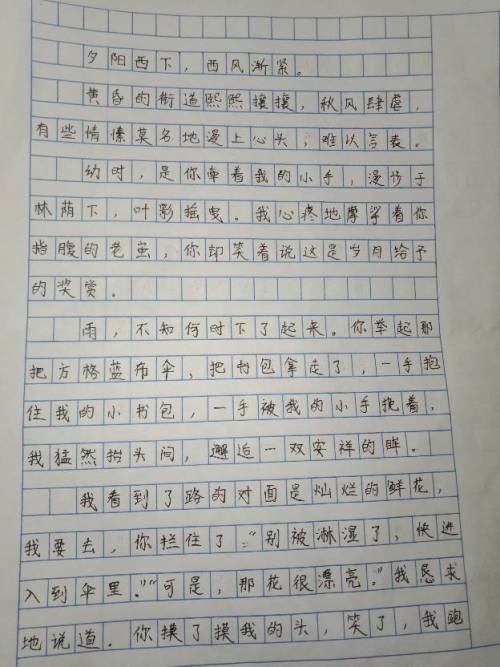 夕阳西下，西风渐紧。
黄昏的街道熙熙攘攘，秋风肆虐，
有些情愫莫名地漫上心头，难以言表。
幼时，是你牵着我的小手，漫步于
林荫下，叶影摇曳。我心疼地摩挲着你
指腹的老茧，你却笑着说这是岁月给予
的奖赏。
雨，不知何时下了起来。你举起那
把方格蓝布伞，把书包拿走了，一手抱
住我的小书包，一手被我的小手挽着，
我猛然抬头间，邂逅一双安祥的眸。
我看到了路的对面是灿烂的鲜花，
我要去，你拦住了：“别被淋湿了，快进
入到伞里。”“可是，那花很漂亮。”我恳求
地说道。你摸了摸我的头，笑了，我跑